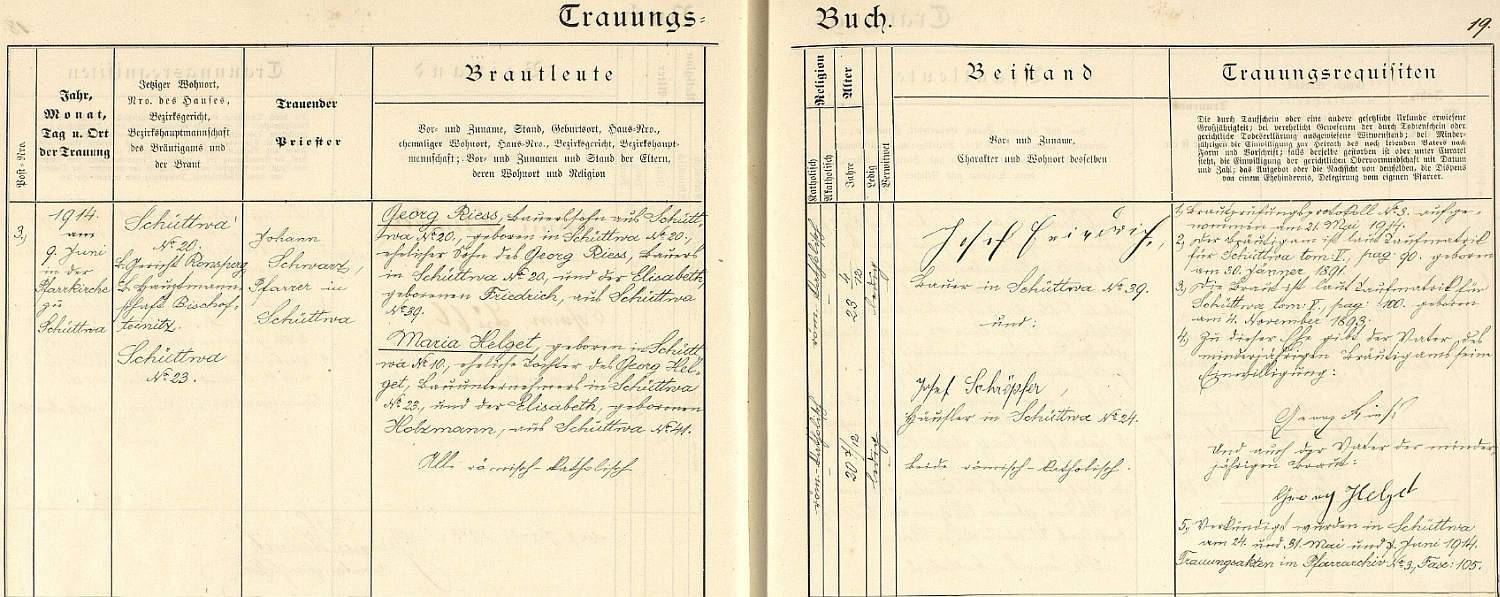 Trauungs=
Buch.
19.
Post-Nro.
Jahr,
Monat,
Tag u. Ort
der Trauung
Jetziger Wohnort,
Nro. des Hauses,
Bezirksgericht,
Bezirkshauptmannschaft
des Bräutigams und
der Braut
Trauender
Priester
Brautleute
Vor- und Zuname, Stand, Geburtsort, Haus-Nro.,
ehemaliger Wohnort, Haus-Nro., Bezirksgericht, Bezirkshaupt-
mannschaft; Vor- und Zunamen und Stand der Eltern,
deren Wohnort und Religion
Religion
Katholisch
Akatholisch
Alter
Jahre
Ledig
Verwitwet
Beistand
Vor- und Zuname,
Charakter und Wohnort desselben
Trauungsrequisiten
Die durch Taufschein oder eine andere gesetzliche Urkunde erwiesene
Großjährigkeit; bei verehelicht Gewesenen der durch Todtenschein oder
gerichtliche Todeserklärung ausgewiesene Witwenstand; bei Minder-
jährigen die Einwilligung zur Heirath des noch lebenden Vaters nach
Form und Vorschrift; falls derselbe gestorben ist oder unter Curatel
steht, die Einwilligung der gerichtlichen Obervormundschaft mit Datum
und Zahl; das Aufgebot oder die Nachsicht von denselben, die Dispens
von einem Ehehindernis, Delegirung vom eigenen Pfarrer.
3,
1914.
am
9. Juni
in der
Pfarrkirche
zu
Schüttwa
Schüttwa
No 20.
k. Gericht Ronsperg
k. Hauptmann-
schaft Bischof-
teinitz.
Schüttwa
No 23.
Johann
Schwarz,
Pfarrer in
Schüttwa
Georg Riess, Bauerssohn aus Schütt-
wa No 20., geboren in Schüttwa No 20.,
ehelicher Sohn des Georg Riess, Bauers
in Schüttwa No 20, und der Elisabeth,
geborenen Friedrich, aus Schüttwa
No 39.
Maria Helget, geboren in Schütt-
wa No 10., eheliche Tochter des Georg Hel-
get, Bauunternehmers in Schüttwa
No 23., und der Elisabeth, geborenen
Holzmann, aus Schüttwa No 41.
Alle römisch-katholisch
röm. katholisch
23 4/12
ledig
röm.-katholisch
20 7/12
ledig
Josef Friedrich,
Bauer in Schüttwa No 39.
und:
Josef Schröpfer,
Häusler in Schüttwa No 24.
beide römisch-katholisch.
1, Brautprüfungsprotokoll No 3. aufge-
nommen am 21. Mai 1914.
2, Der Bräutigam ist laut Taufmatrik
für Schüttwa tom. V., pag. 90. geboren
am 30. Jänner 1891.
3, Die Braut ist laut Taufmatrik für
Schüttwa tom: V., pag: 100. geboren
am 4. November 1893.
4, Zu dieser Ehe gibt der Vater des
minderjährigen Bräutigams seine
Einwilligung:
Georg Rieß
Und auch der Vater der minder-
jährigen Braut:
Georg Helget
5, Verkündigt wurden in Schüttwa
am 24. und 31. Mai und Juni 1914.
Trauungsakten im Pfarrarchiv No 3, Fasc: 105.